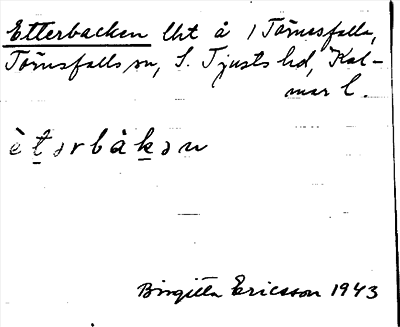 Etterbacken lht å 1 Törnsfalla,
Törnsfalls sn, S. Tjusts hd, Kal-
mar l.
è t ə r b à k ə n
Birgitta Ericsson 1943